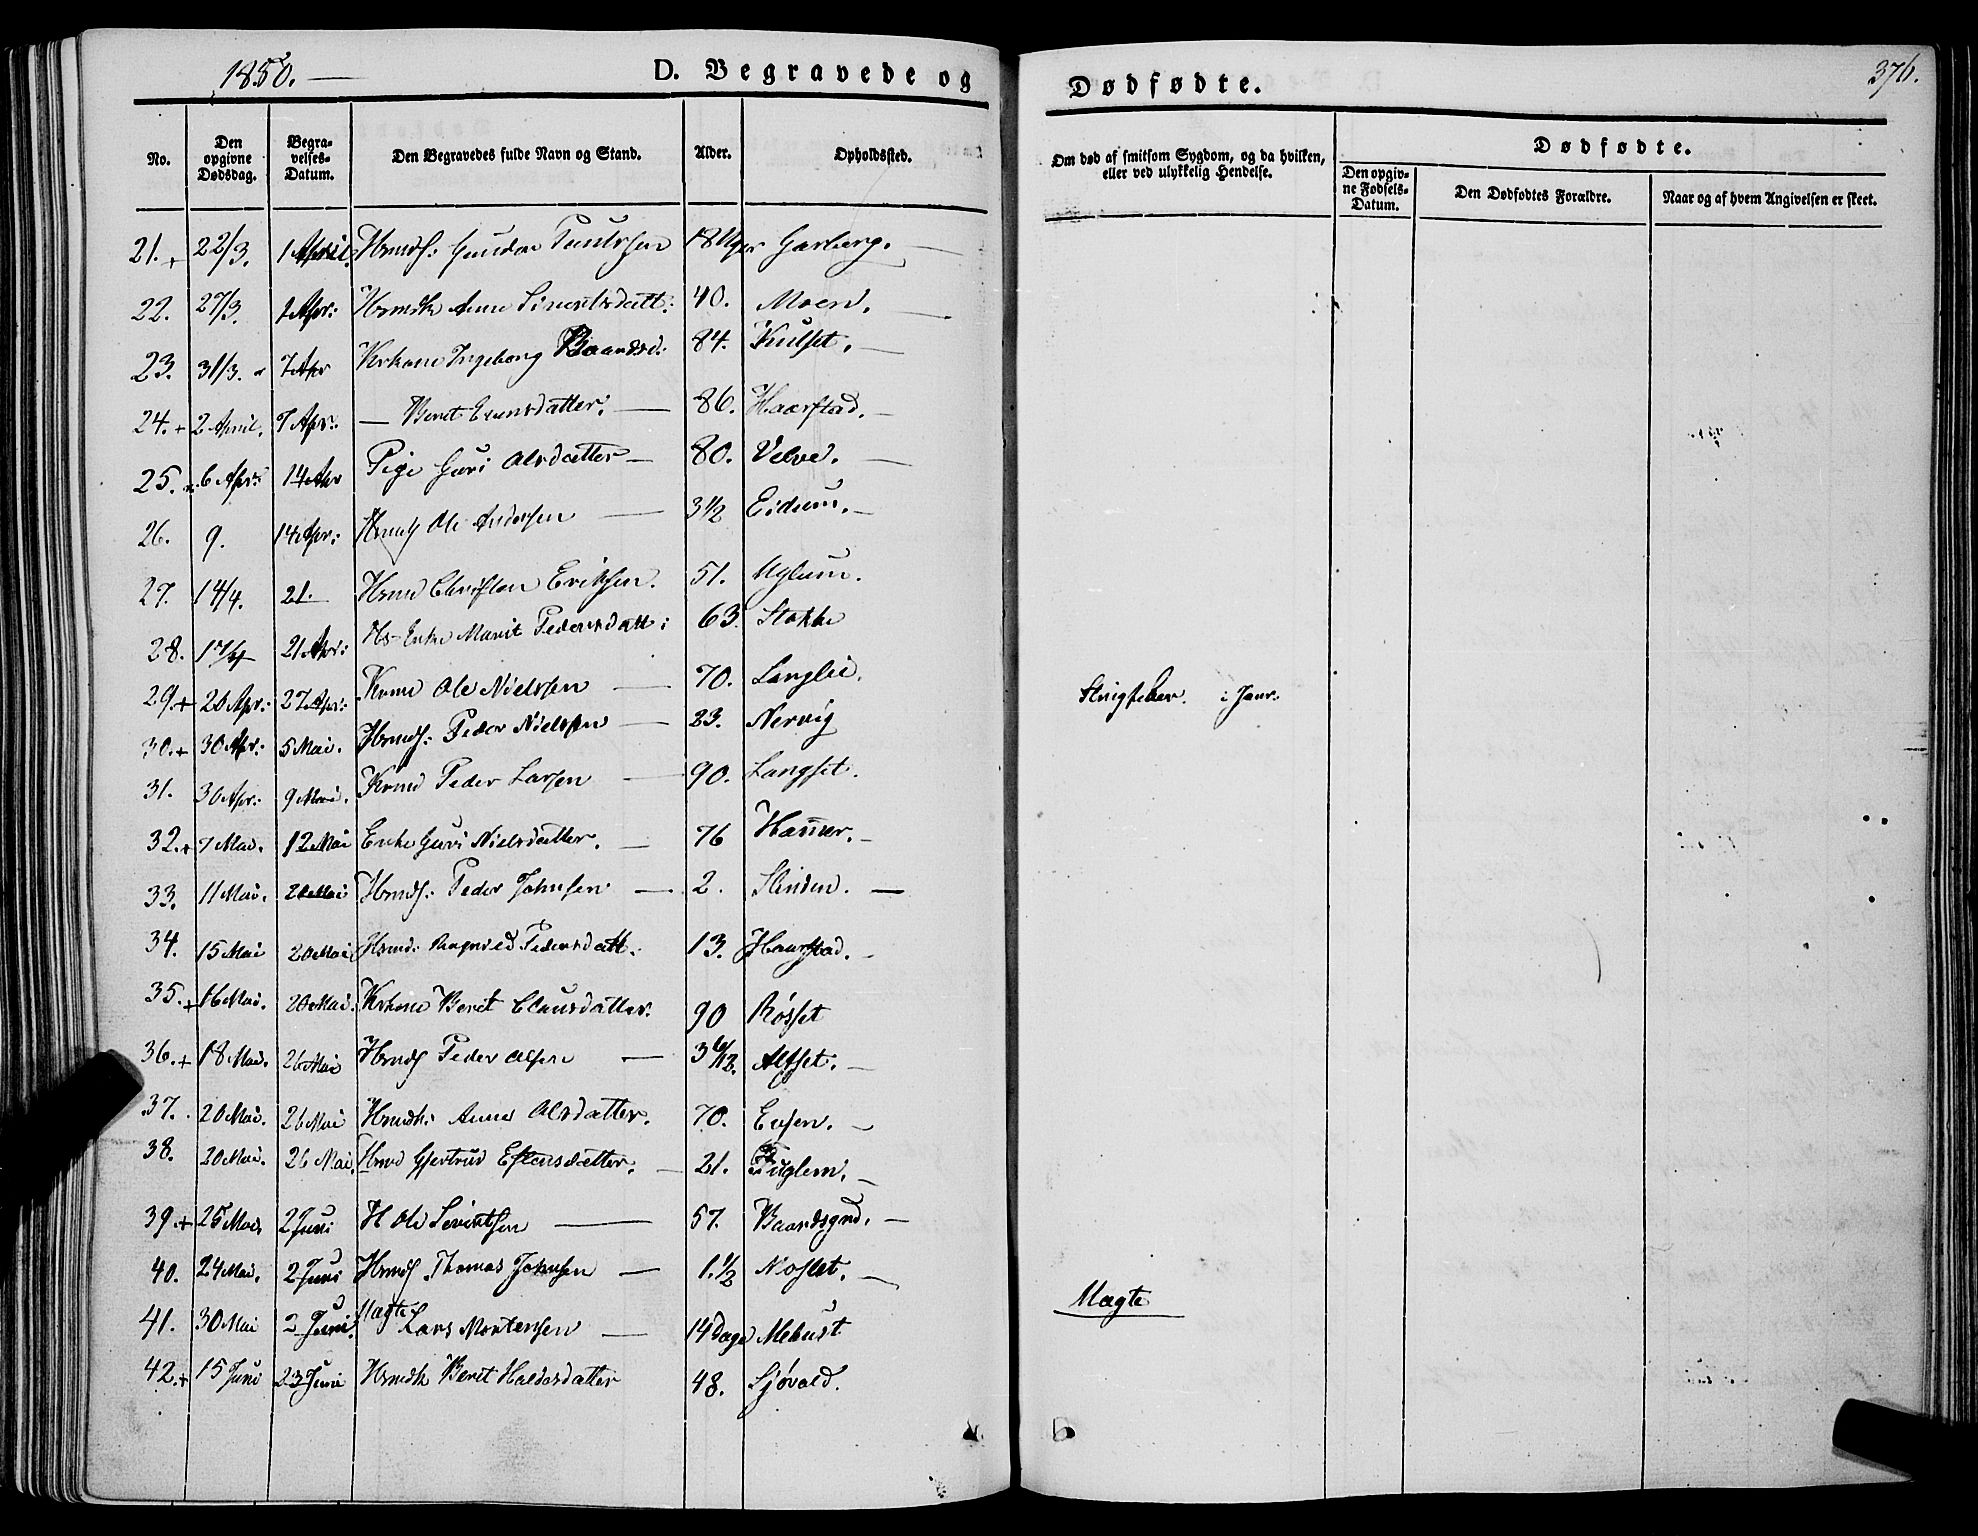 1850. — D. Begravede og Dødfødte. 376.
No. Den opgivne Dødsdag. Begravelses-Datum. Den Begravedes fulde Navn og Stand. Alder. Opholdssted. Om død af smitsom Sygdom, og da hvilken, eller ved ulykkelig Hendelse. Dødfødte.
Den opgivne Fødsels-Datum. Den Dødfødtes Forældre. Naar og af hvem Angivelsen er skeet.
21. + 22/3. 1 April. Hsmds: Gunder Paulssen 18 Uger Garberg. —
22. 27/3. 1 Apr: Hsmdk Anne Sivertsdatt: 40. Moen. —
23. 31/3. 7 Apr Krkone Ingeborg Baardsd: 84. Kulset. —
24. + 2 April. 7 Apr: — Beret Evensdatter: — 86. Haarstad. —
25. 6 Apr: 14 Apr Pige Guri Olsdatter — 80. Velve. —
26. 9. 14 Apr: Hsmds Ole Andersen — 3 1/2 Eidum. —
27. 14/4. 21. Hsmd Christen Eriksen. 51. Uglum.
28. 17/4 21 Apr: Hs-Enke Marit Pedersdatt: 63. Stokke
29. + 20 Apr: 27 Apr: Krmd Ole Nielssen — 70. Langlie.
30. + 30 Apr: 5 Mai. Hsmds: Peder Nielssen — 23. Nervig i Janr.
31. 30 Apr: 9 Mai. Krmd Peder Larsen — 90. Langset.
32. + 7 Mai. 12 Mai Enke Guri Nielsdatter. — 76 Hammer. —
33. 11 Mai. 20 Mai Hsmds: Peder Johnsen — 2. Slinden. —
34. 15 Mai 20 Mai Hsmd: Pedersdatt. 13. Haarstad. —
35. + 16 Mai. 20 Mai. Krkone Beret Clausdatter. 90 Røsset
36. + 18 Mai. 26 Mai Hsmds Peder Olsen — 3 6/12. Altset. —
37. 20 Mai. 26 Mai Hsmdk: Anne Olsdatter. 70. Eusen. —
38. 20 Mai. 26 Mai. Hsmd Gjertrud Estensdatter. — 21. Fuglem. —
39. + 25 Mai. 2 Juni H Ole Sivertsen — 57. Baardsgrd. —
40. 24 Mai. 2 Juni Hsmds Thomas Johnsen — 1. 1/2 Moslet. —
41. 30 Mai 2 Juni. Uægte Lars Mortensen — 14 Dage Mebust Uægte
42. + 15 Juni 23 Juni Hsmdk Beret Haldorsdatter 48. Sjøvold.